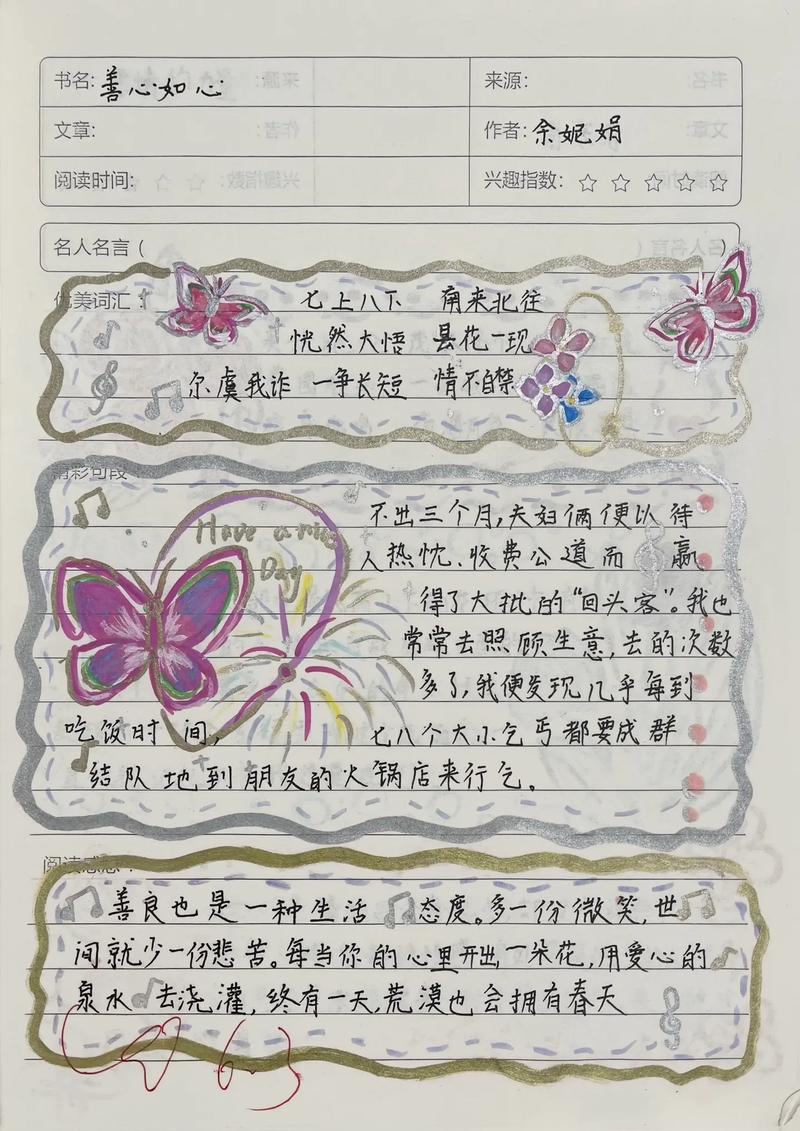 书名: 善心如心
来源:
文章:
作者: 余妮娟
阅读时间:
兴趣指数: ☆ ☆ ☆ ☆ ☆
名人名言 (
)
优美词汇:
七上八下 南来北往
恍然大悟 昙花一现
尔虞我诈 一争长短 情不自禁
精彩句段
Have a nice
Day
不出三个月,夫妇俩便以待
人热忱、收费公道而赢
得了大批的“回头客”。我也
常常去照顾生意,去的次数
多了,我便发现几乎每到
吃饭时间, 七八个大小乞丐都要成群
结队地到朋友的火锅店来行乞。
阅读感想:
善良也是一种生活态度。多一份微笑,世
间就少一份悲苦。每当你的心里开出一朵花,用爱心的
泉水去浇灌,终有一天,荒漠也会拥有春天
6.3